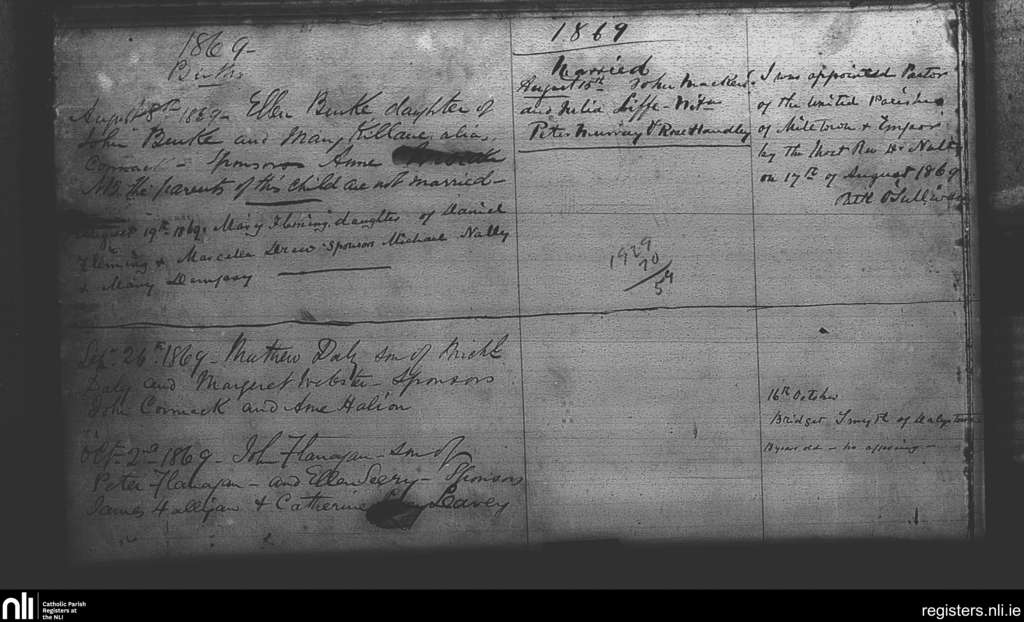 1869-
Births
August 8th 1869- Ellen Burke daughter of
John Burke and Mary Killane alias
Cormack - Sponsors Anne
NB. the parents of this child are not married-
August 19th 1869. Mary Fleming, daughter of Daniel
Fleming & Marcella Drew Sponsors Michael Nally
& Mary Dempsey
Sepr 26th 1869- Matthew Daly son of Michl
Daly and Margaret Webster - Sponsors
John Cormack and Anne
Octr 2nd 1869- John Flanagan - son of
Peter Flanagan - and Ellen Seery - Sponsors
James Halligan & Catherine Leavey
1869
Married
August 15th John
and Julia
Peter Murray & Rose Handley
1929
70
59
I was appointed Pastor
of the United Parishes
of Miletown & Empor
by the Most Rev Dr Nulty
on 17th of August 1869
O'Sullivan
16th October
Bridget Smyth of Dalystown
18 years old - no
nli
Catholic Parish
Registers at
the NLI
registers.nli.ie